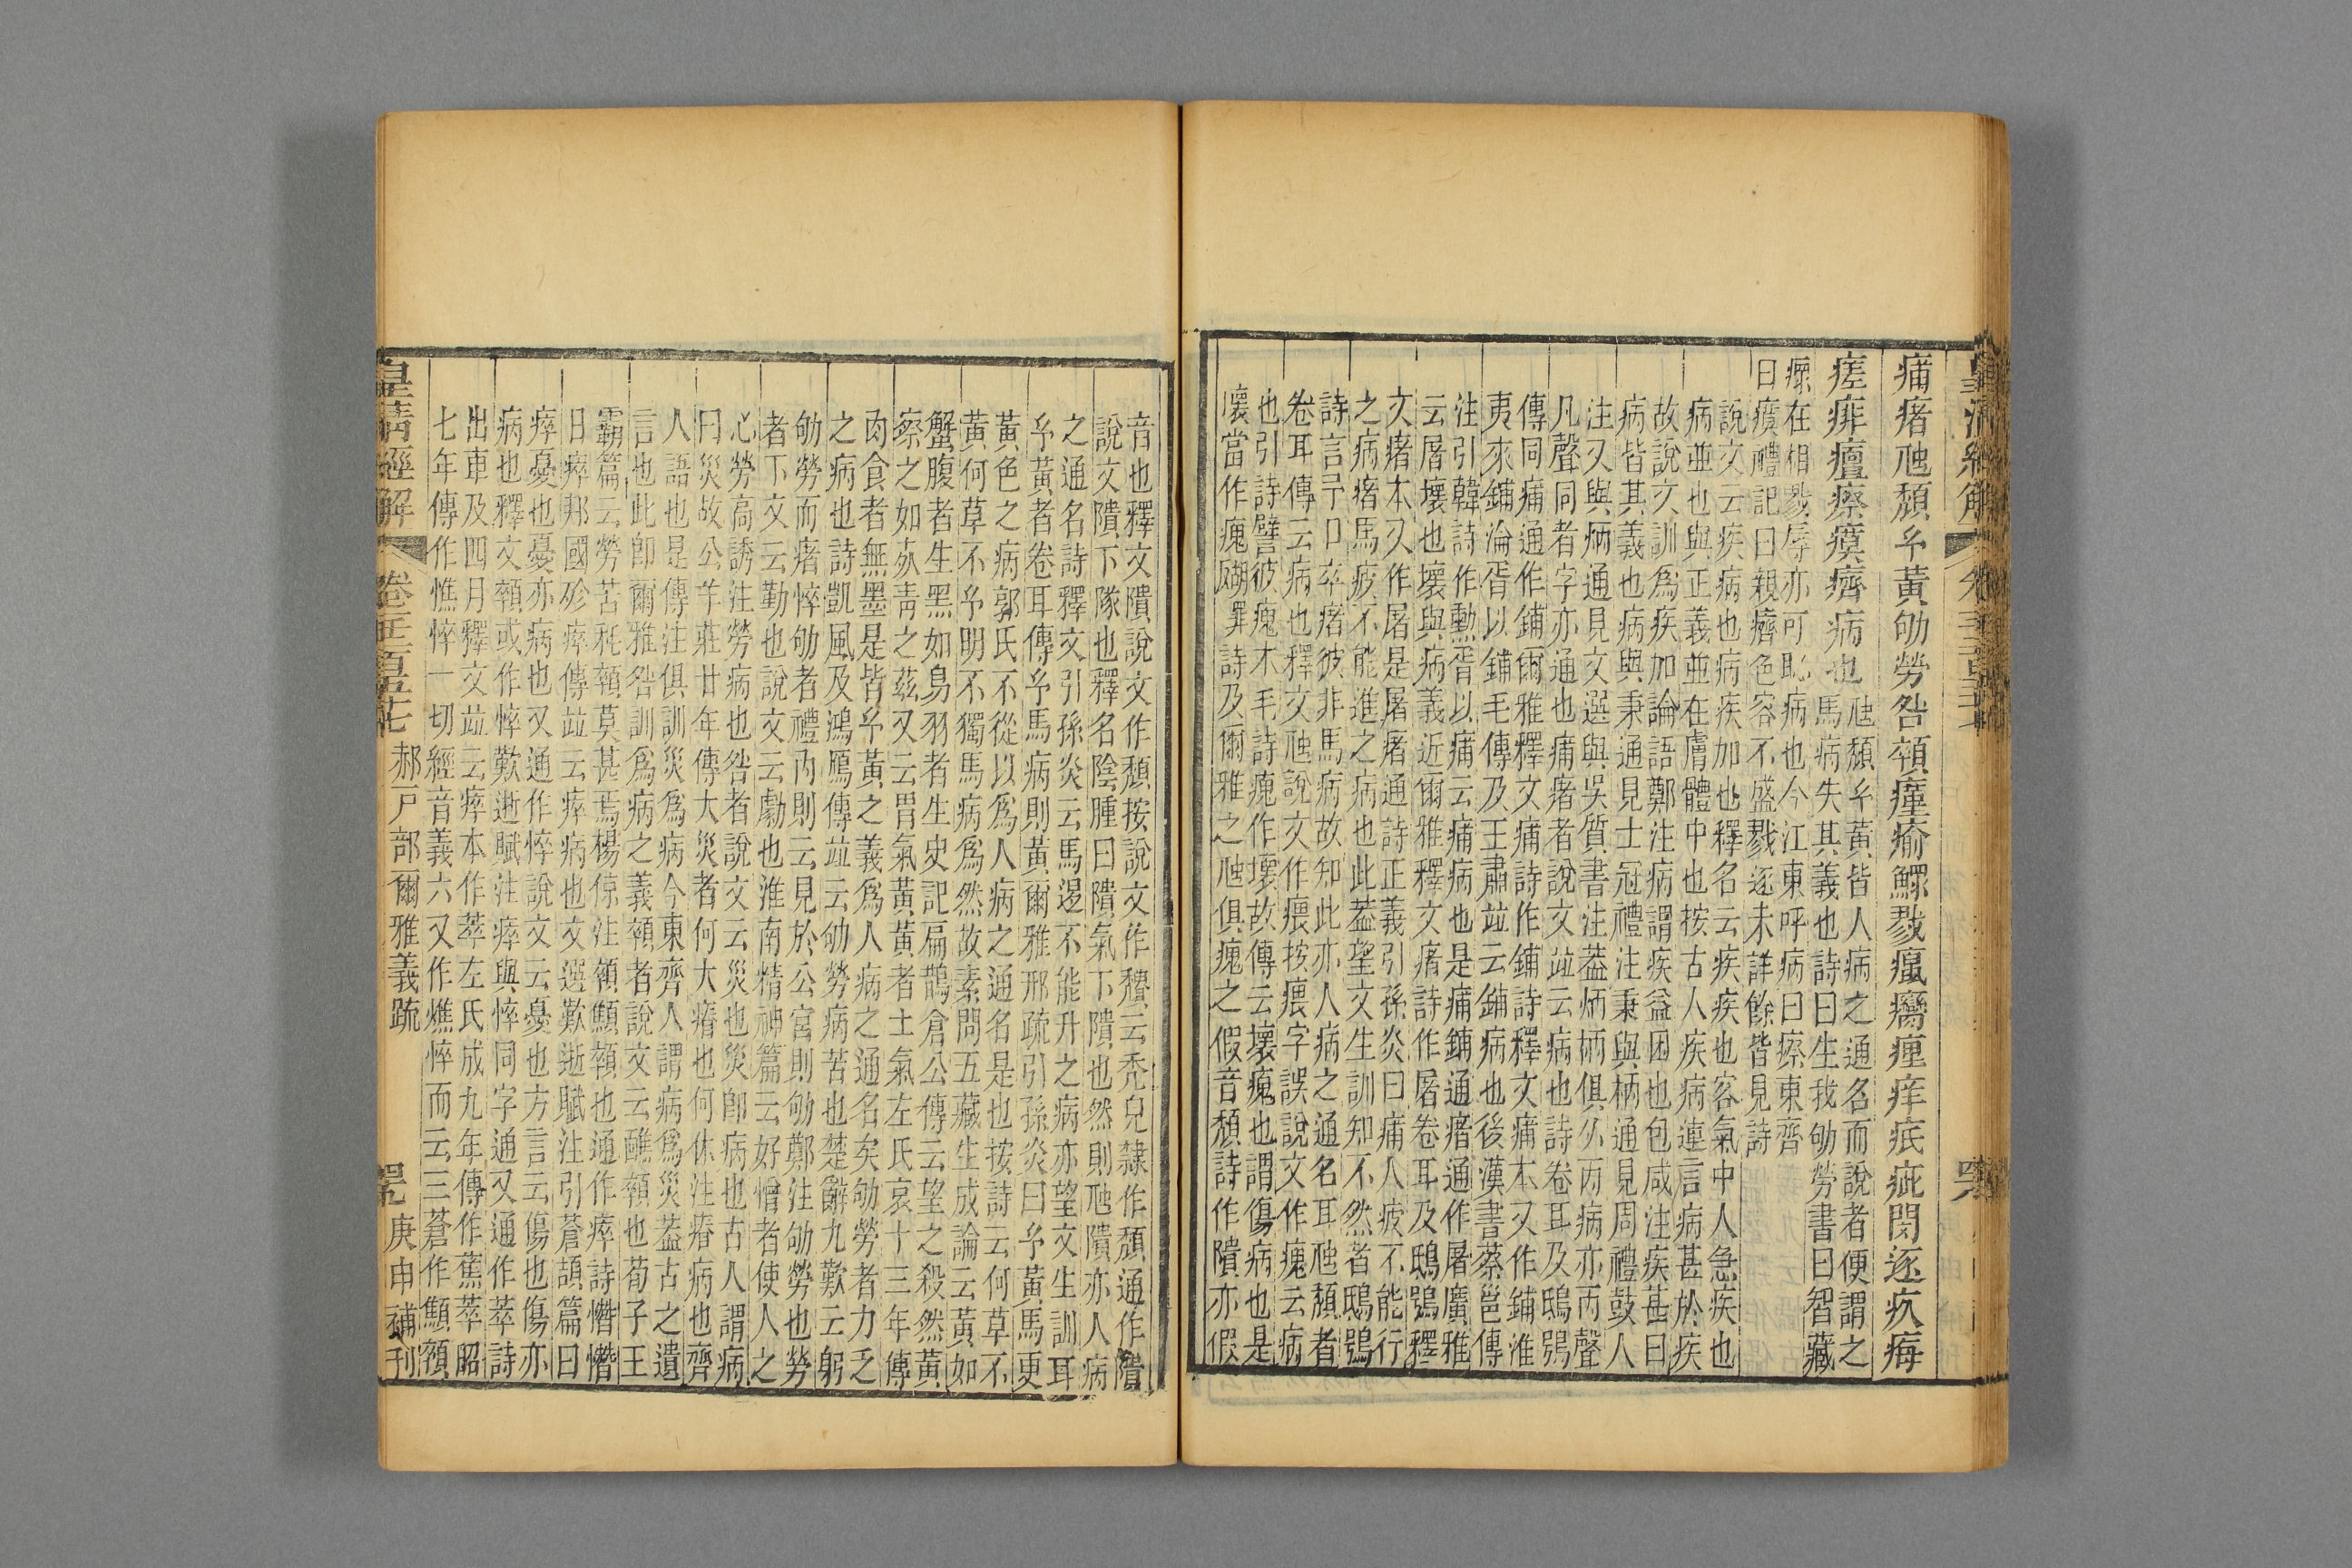 皇清經解
痡瘏虺頽玄黃劬勞咎顇瘽瘉鰥戮癙癵㾖痒疷疵閔逐疚痗
瘥痱㿊瘵瘼癠病也
虺頽玄黃皆人病之通名而說者便謂之
馬病失其義也詩曰生我劬勞書曰智藏
瘝在相戮辱亦可恥病也今江東呼病曰瘵東齊
曰瘼禮記曰親癠色容不盛戮逐未詳餘皆見詩
說文云疾病也病疾加也釋名云疾疾也客氣中人急疾也
病並也與正義並在膚體中也按古人疾病連言病甚於疾
故說文訓爲疾加論語鄭注病謂疾益困也包咸注疾甚曰
病皆其義也病與秉通見士冠禮注秉與柄通見周禮鼓人
注又與炳通見文選與吳質書注葢炳柄俱从丙病亦丙聲
凡聲同者字亦通也痡瘏者說文竝云病也詩卷耳及鴟鴞
傳同痡通作鋪爾雅釋文痡詩作鋪詩釋文痡本又作鋪淮
夷來鋪淪胥以鋪毛傳及王肅竝云鋪病也後漢書蔡邕傳
注引韓詩作勳胥以痡云痡病也是痡鋪通瘏通作屠廣雅
云屠壞也壞與病義近爾雅釋文瘏詩作屠卷耳及鴟鴞釋
文瘏本又作屠是屠瘏通詩正義引孫炎曰痡人疲不能行
之病瘏馬疲不能進之病也此葢望文生訓知不然者鴟鴞
詩言予口卒瘏彼非馬病故知此亦人病之通名耳虺頽者
卷耳傳云病也釋文虺說文作㾯按㾯字誤說文作瘣云病
也引詩譬彼瘣木毛詩瘣作壞故傳云壞瘣也謂傷病也是
壞當作瘣郷㻎詩及爾雅之虺俱瘣之假音頽詩作隤亦假
音也釋文隤說文作頽按說文作穨云禿皃隸作頽通作隤
說文隤下隊也釋名陰腫曰隤氣下隤也然則虺隤亦人病
之通名詩釋文引孫炎云馬退不能升之病亦望文生訓耳
玄黃者卷耳傳玄馬病則黃爾雅邢疏引孫炎曰玄黃馬更
黃色之病郭氏不從以爲人病之通名是也按詩云何草不
黃何草不玄明不獨馬病爲然故素問五藏生成論云黃如
蟹腹者生黑如烏羽者生史記扁鵲倉公傳云望之殺然黃
察之如死青之茲又云胃氣黃黃者土氣左氏哀十三年傳
肉食者無墨是皆玄黃之義爲人病之通名矣劬勞者力乏
之病也詩凱風及鴻鴈傳竝云劬勞病苦也楚辭九歎云躬
劬勞而瘏悴劬者禮內則云見於公宮則劬鄭注劬勞也勞
者下文云勤也說文云勮也淮南精神篇云好憎者使人之
心勞高誘注勞病也咎者說文云災也災卽病也古人謂病
曰災故公羊莊廿年傳大災者何大瘠也何休注瘠病也齊
人語也是傳注俱訓災爲病今東齊人謂病爲災葢古之遺
言也此卽爾雅咎訓爲病之義顇者說文云醮顇也荀子王
霸篇云勞苦秏顇莫甚焉楊倞注顇顦顇也通作瘁詩憯憯
日瘁邦國殄瘁傳竝云瘁病也文選歎逝賦注引蒼頡篇曰
瘁憂也憂亦病也又通作悴說文云憂也方言云傷也傷亦
病也釋文顇或作悴歎逝賦注瘁與悴同字通又通作萃詩
出車及四月釋文竝云瘁本作萃左氏成九年傳作蕉萃昭
七年傳作憔悴一切經音義六又作燋悴而云三蒼作顦顇
皇清經解 卷千二百五十七 郝戶部爾雅義疏 庚申補刊